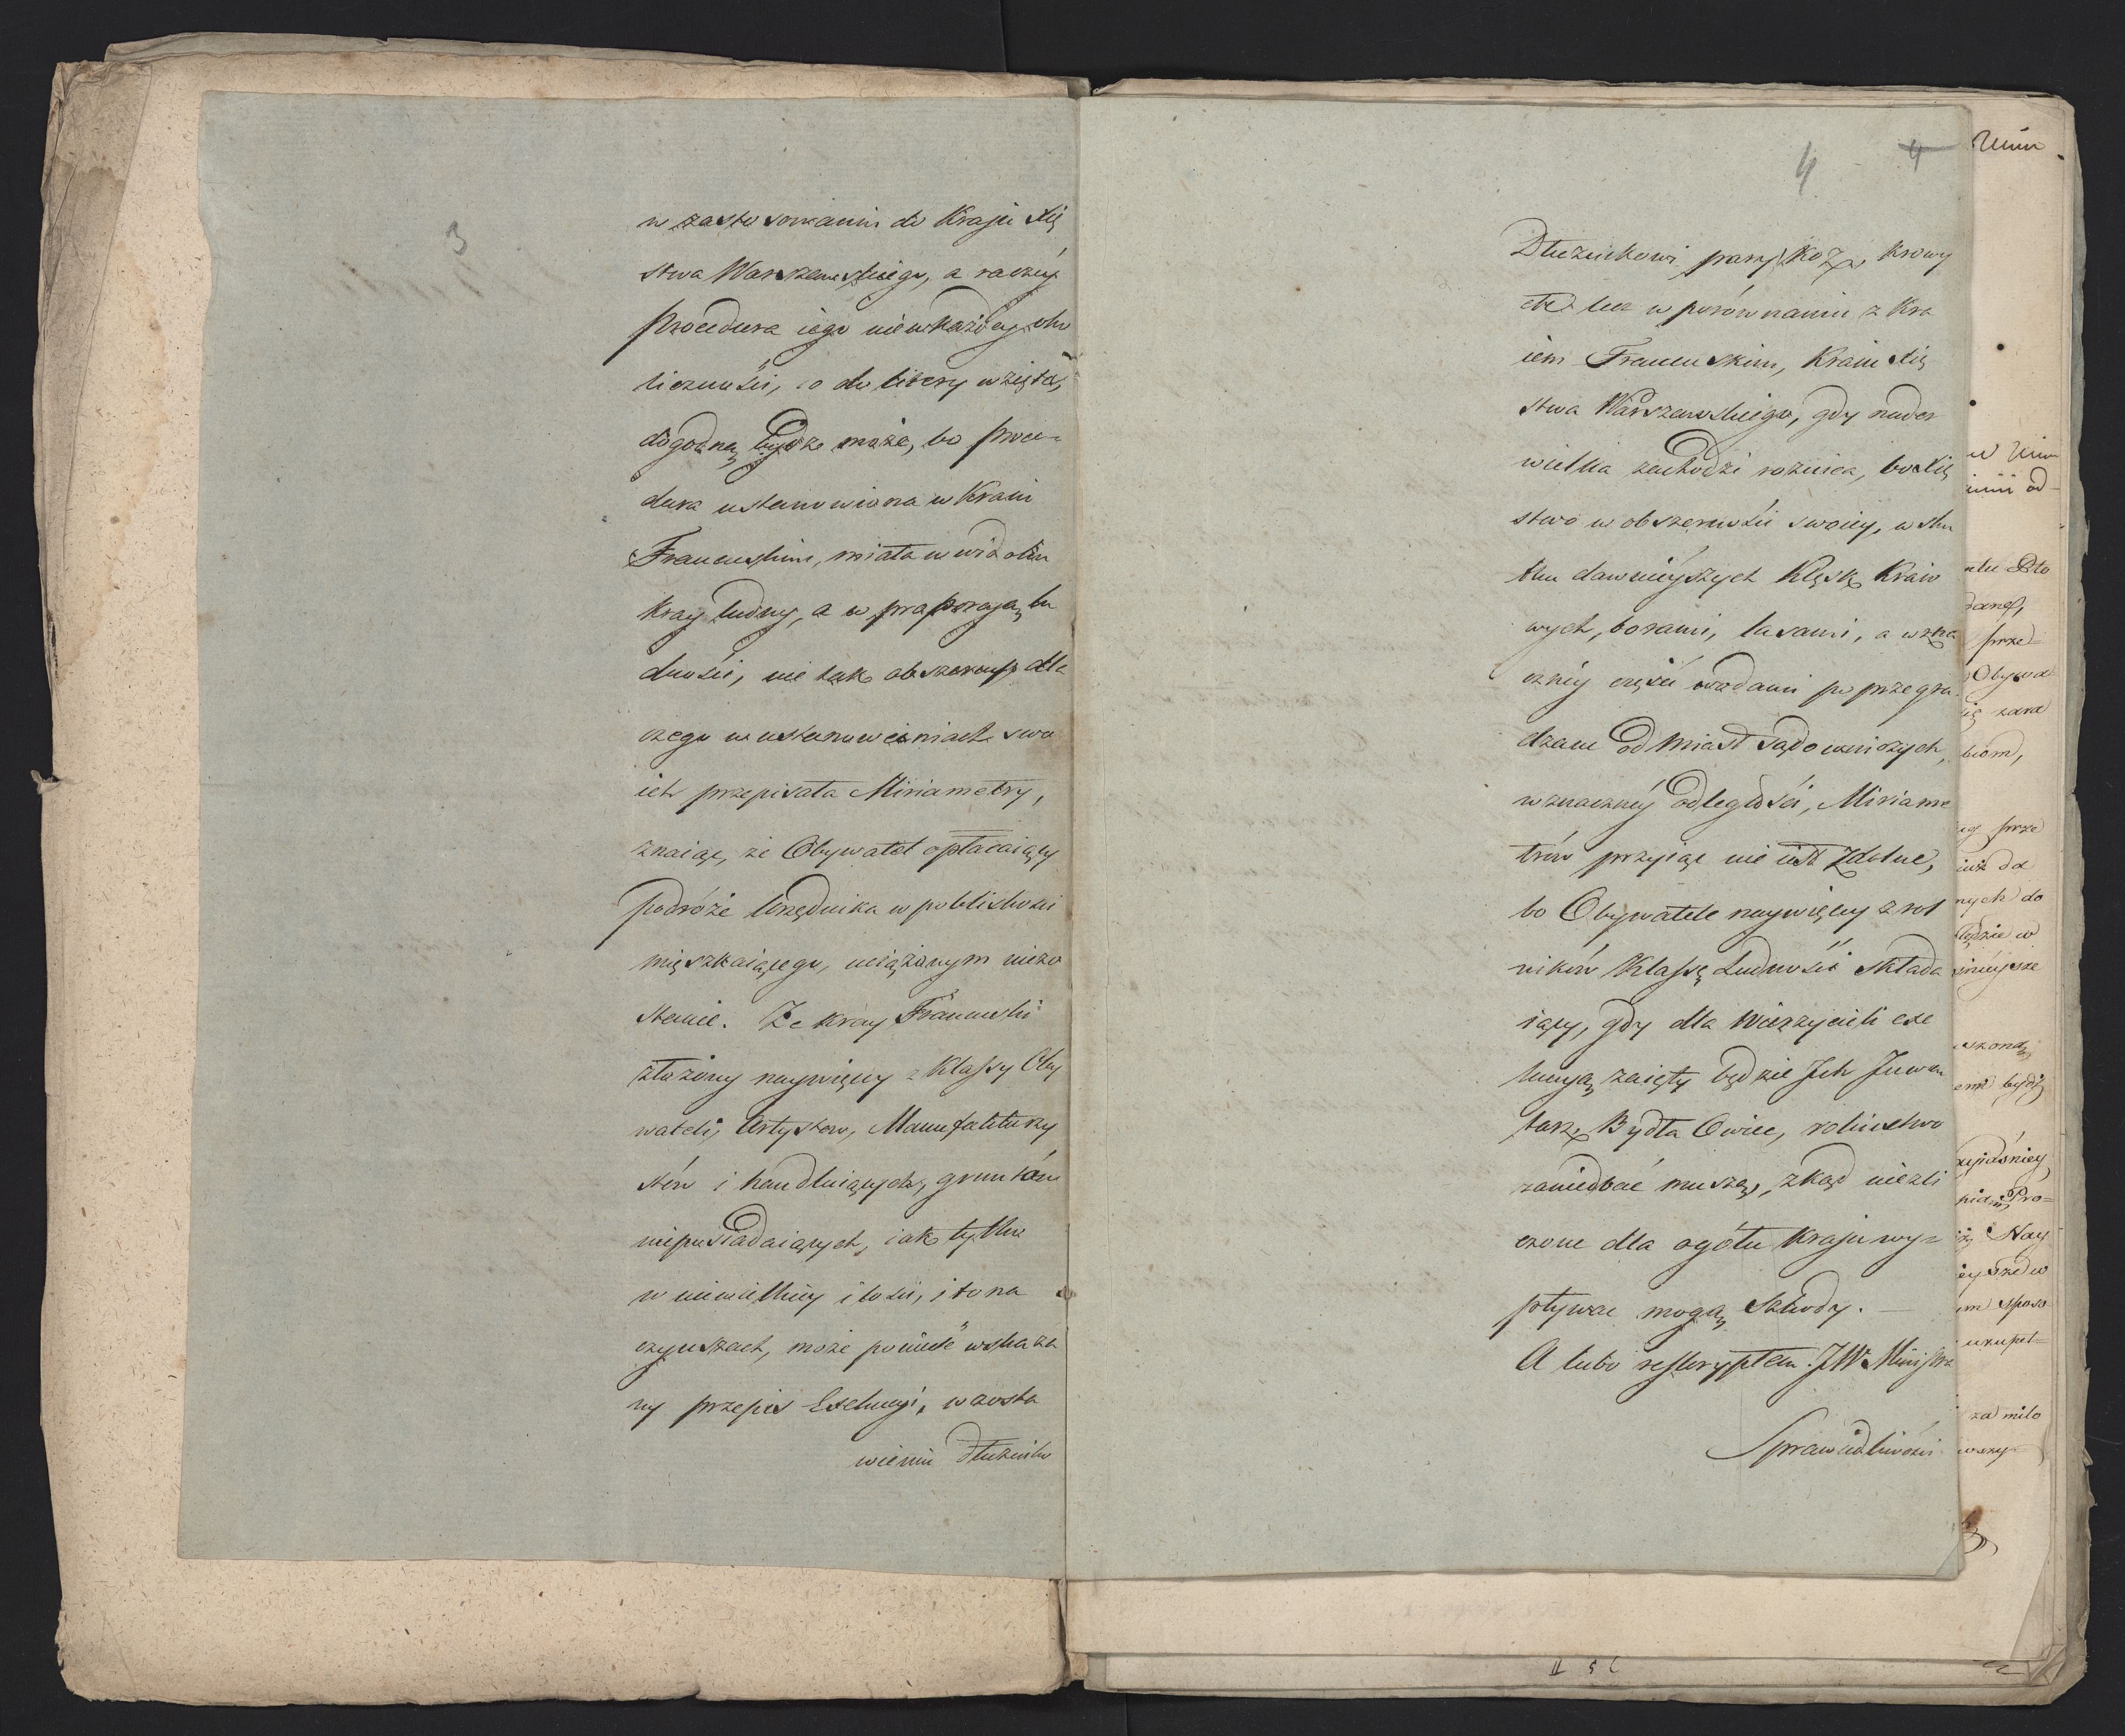 3
w zastosowaniu do Kraju Xię
stwa Warszawskiego, a raczéy
Procedura iego nie w każdey oko
liczności, co do litery wzięta,
dogodną bydź może, bo proce-
dura ustanowiona w Kraiu
Francuskim, miała w widoku
kray ludny, a w proporcyą lu
dności, nie tak obszerny dla
czego w ustanowieniach swo
ich przepisała Miriametry,
znaiąc, że Obywatel opłacaiący
podróże Urzędnika w pobliskości
mięszkaiącego, uciążonym niezo
stanie. Że kray Francuski
złożony naywięcy z Klassy Oby
wateli, Artystów, Manufaktury
stów i handluiących, gruntów
nieposiadaiących, iak tylko
w niewielkiéy ilości, i to na
czynszach, może ponieść wskaza
ny przepis Exekucyi, w zosta
wieniu dłużniko
4 4
Dłużnikowi pary Kóz, krowy
etc. lecz w porównaniu z Kra
iem Francuskim, Kraiu Xię
stwa Warszawskiego, gdy nader
wielka zachodzi różnica, bo Xię
stwo w obszerności swoiey, w sku
tku dawnieyszych Klęsk Kraio
wych, borami, lasami, a w zna
cznéy części wodami poprzegra
dzane od miast sądowniczych,
w znacznéy odległości, Miriame
trów przyiąć nie iest zdolne,
bo Obywatele naywięcey z rol
ników Klassę Ludności składa
iący, gdy dla Wierzycieli exe
kucyą zaięty będzie Ich Inwen
tarz, Bydła Owiec, rolnictwo
zaniedbać muszą, zkąd niezli
czone dla ogółu kraju wy-
pływać mogą szkody. —
A lubo reskryptem JW Ministra
Sprawiedliwości